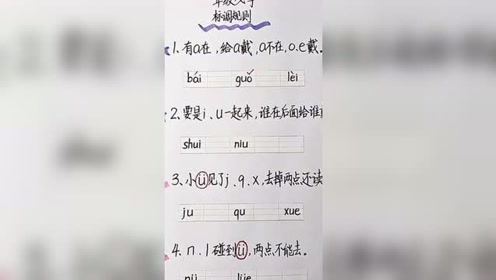 标调规则
1、有a在,给a戴,a不在,o.e戴。
bái guǒ lèi
2、要是i、u一起来,谁在后面给谁
shui niu
3、小ü见了j、q、x,去掉两点还读
ju qu xue
4、n、l碰到ü,两点不能去。
nü lüe